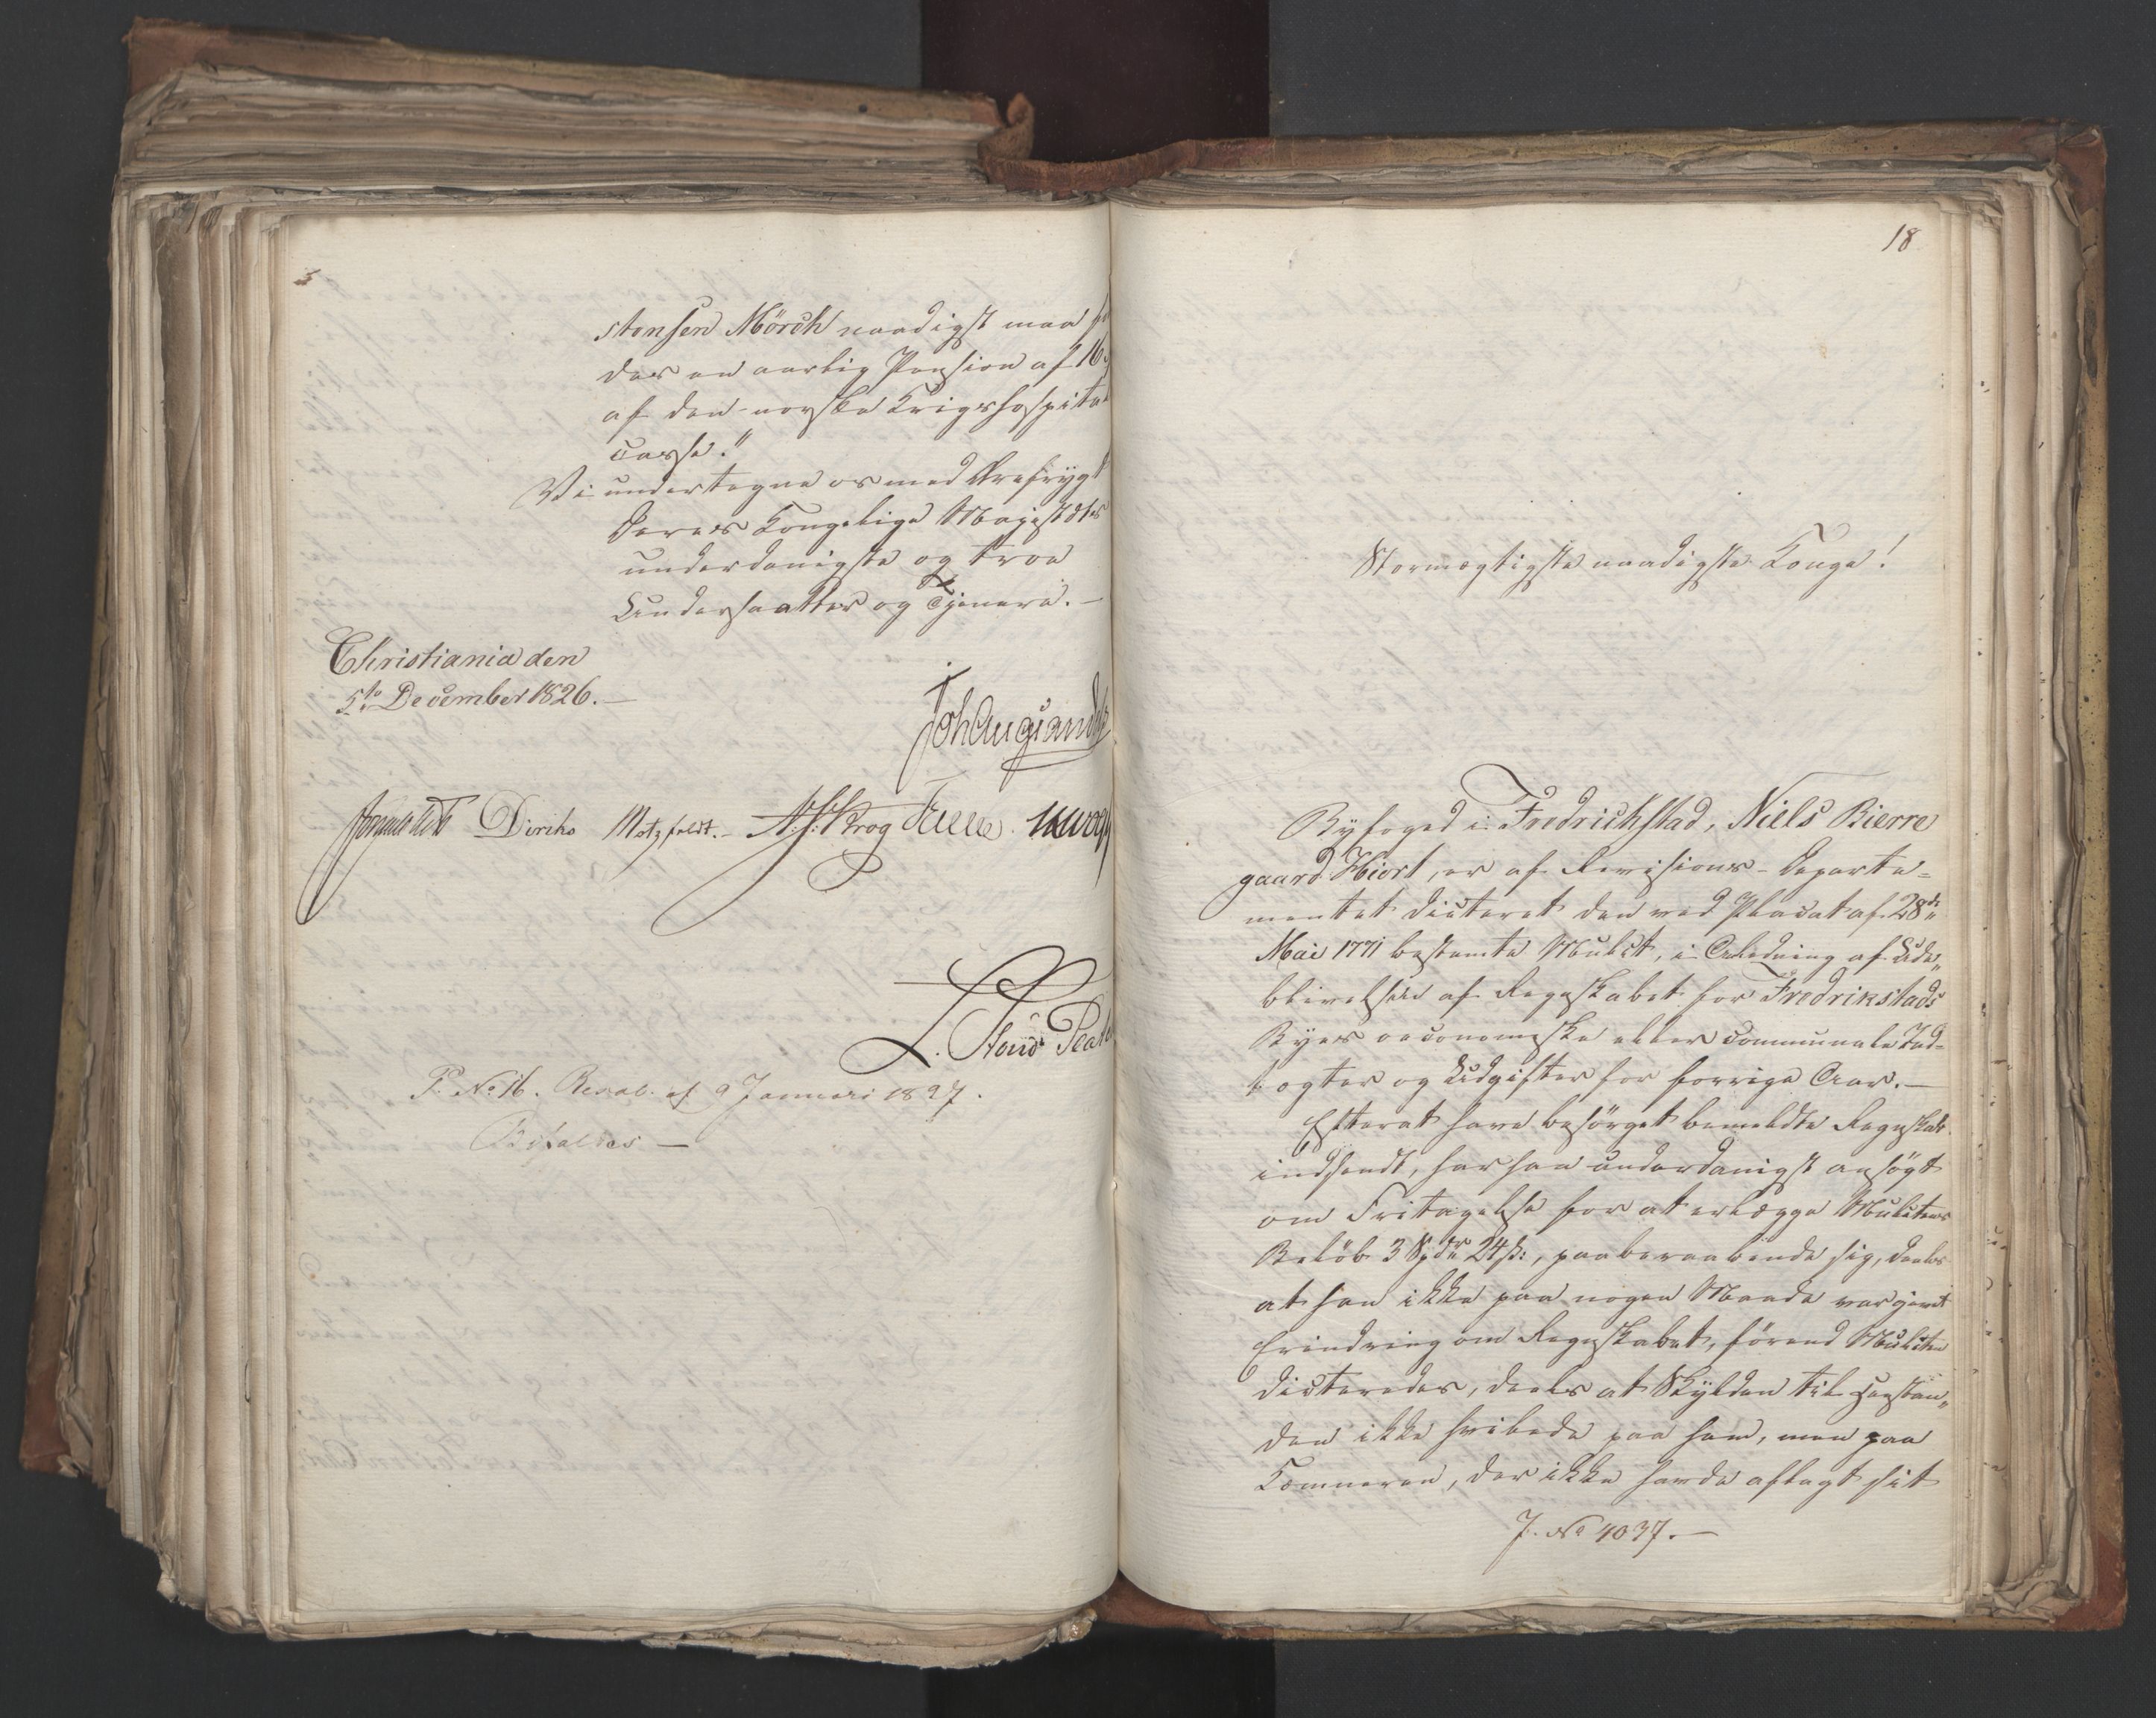 stensen Mörch naadigst maa
des en aarlig Pension af 16
af den norske Krigshospital
casse."
Vi undertegne os med Ærefrygt
Deres Kongelige Majestæts
underdanigste og troe
Undersaatter og Tjenere. —
Christiania den
5te December 1826. —
Diriks Motzfeldt. A. S. Krog Treschow
P. No 16. Resol. af 9 Januari 1827.
Bifaldes —
18
Stormægtigste naadigste Konge!
Byfoged i Fredrichstad, Niels Bierre
gaard Hiort, er af Revisions-Departe=
mentet dicteret den ved Placat af 28de
Mai 1771 bestemte Mulct, i Anledning af Ude„
blivelsen af Regnskabet for Fredrikstads
Byes oeconomiske eller communale Ind-
tægter og Udgifter for forrige Aar. —
Efterat have besörget bemeldte Regnskab
indsendt, har han underdanigst ansögt
om Fritagelse for at erlægge Mulctens
Belöb 3 Spdr 24 s:, paaberaabende sig, deels
at han ikke paa nogen Maade var gjort
Erindring om Regnskabet, förend Mulcten
dicteredes, deels at Skylden til Restan„
den ikke hvilede paa ham, men paa
Kæmneren, der ikke havde aflagt sit
J. No 4037. —